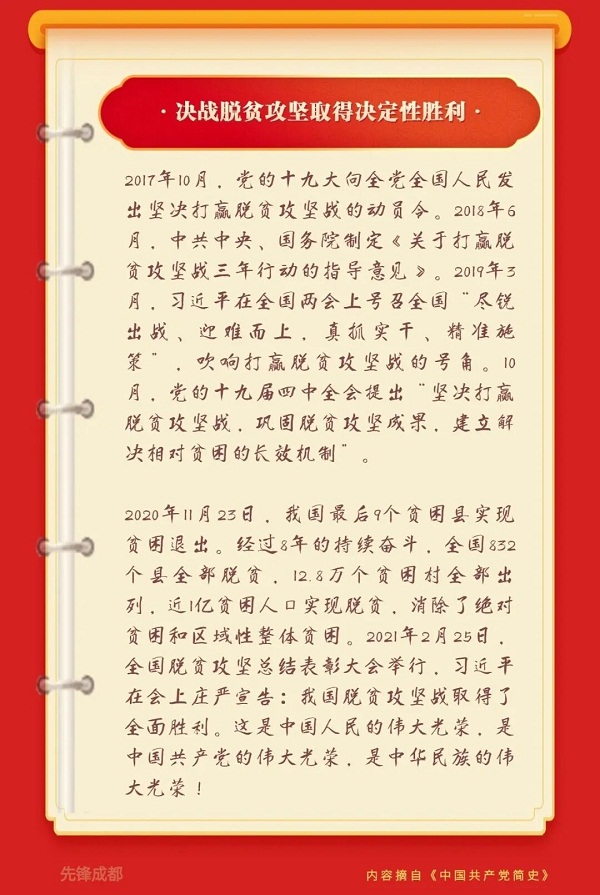 ·决战脱贫攻坚取得决定性胜利·
2017年10月，党的十九大向全党全国人民发
出坚决打赢脱贫攻坚战的动员令。2018年6
月，中共中央、国务院制定《关于打赢脱
贫攻坚战三年行动的指导意见》。2019年3
月，习近平在全国两会上号召全国“尽锐
出战、迎难而上，真抓实干、精准施
策”，吹响打赢脱贫攻坚战的号角。10
月，党的十九届四中全会提出“坚决打赢
脱贫攻坚战，巩固脱贫攻坚成果，建立解
决相对贫困的长效机制”。
2020年11月23日，我国最后9个贫困县实现
贫困退出。经过8年的持续奋斗，全国832
个县全部脱贫，12.8万个贫困村全部出
列，近1亿贫困人口实现脱贫，消除了绝对
贫困和区域性整体贫困。2021年2月25日，
全国脱贫攻坚总结表彰大会举行，习近平
在会上庄严宣告：我国脱贫攻坚战取得了
全面胜利。这是中国人民的伟大光荣，是
中国共产党的伟大光荣，是中华民族的伟
大光荣！
先锋成都
内容摘自《中国共产党简史》